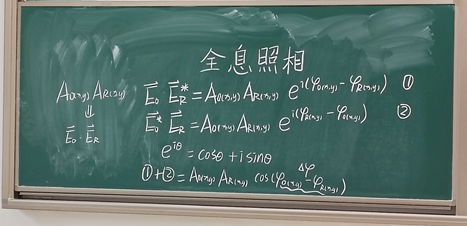 全息照相
A(x,y) AR(x,y)
⇓
E⃗o · E⃗R
E⃗o E⃗R* = Ao(x,y) AR(x,y) e^i(φo(x,y) - φR(x,y)) ①
E⃗o* E⃗R = Ao(x,y) AR(x,y) e^i(φR(x,y) - φo(x,y)) ②
e^iθ = cosθ + i sinθ
Δφ
①+② = Ao(x,y) AR(x,y) cos(φo(x,y) - φR(x,y))